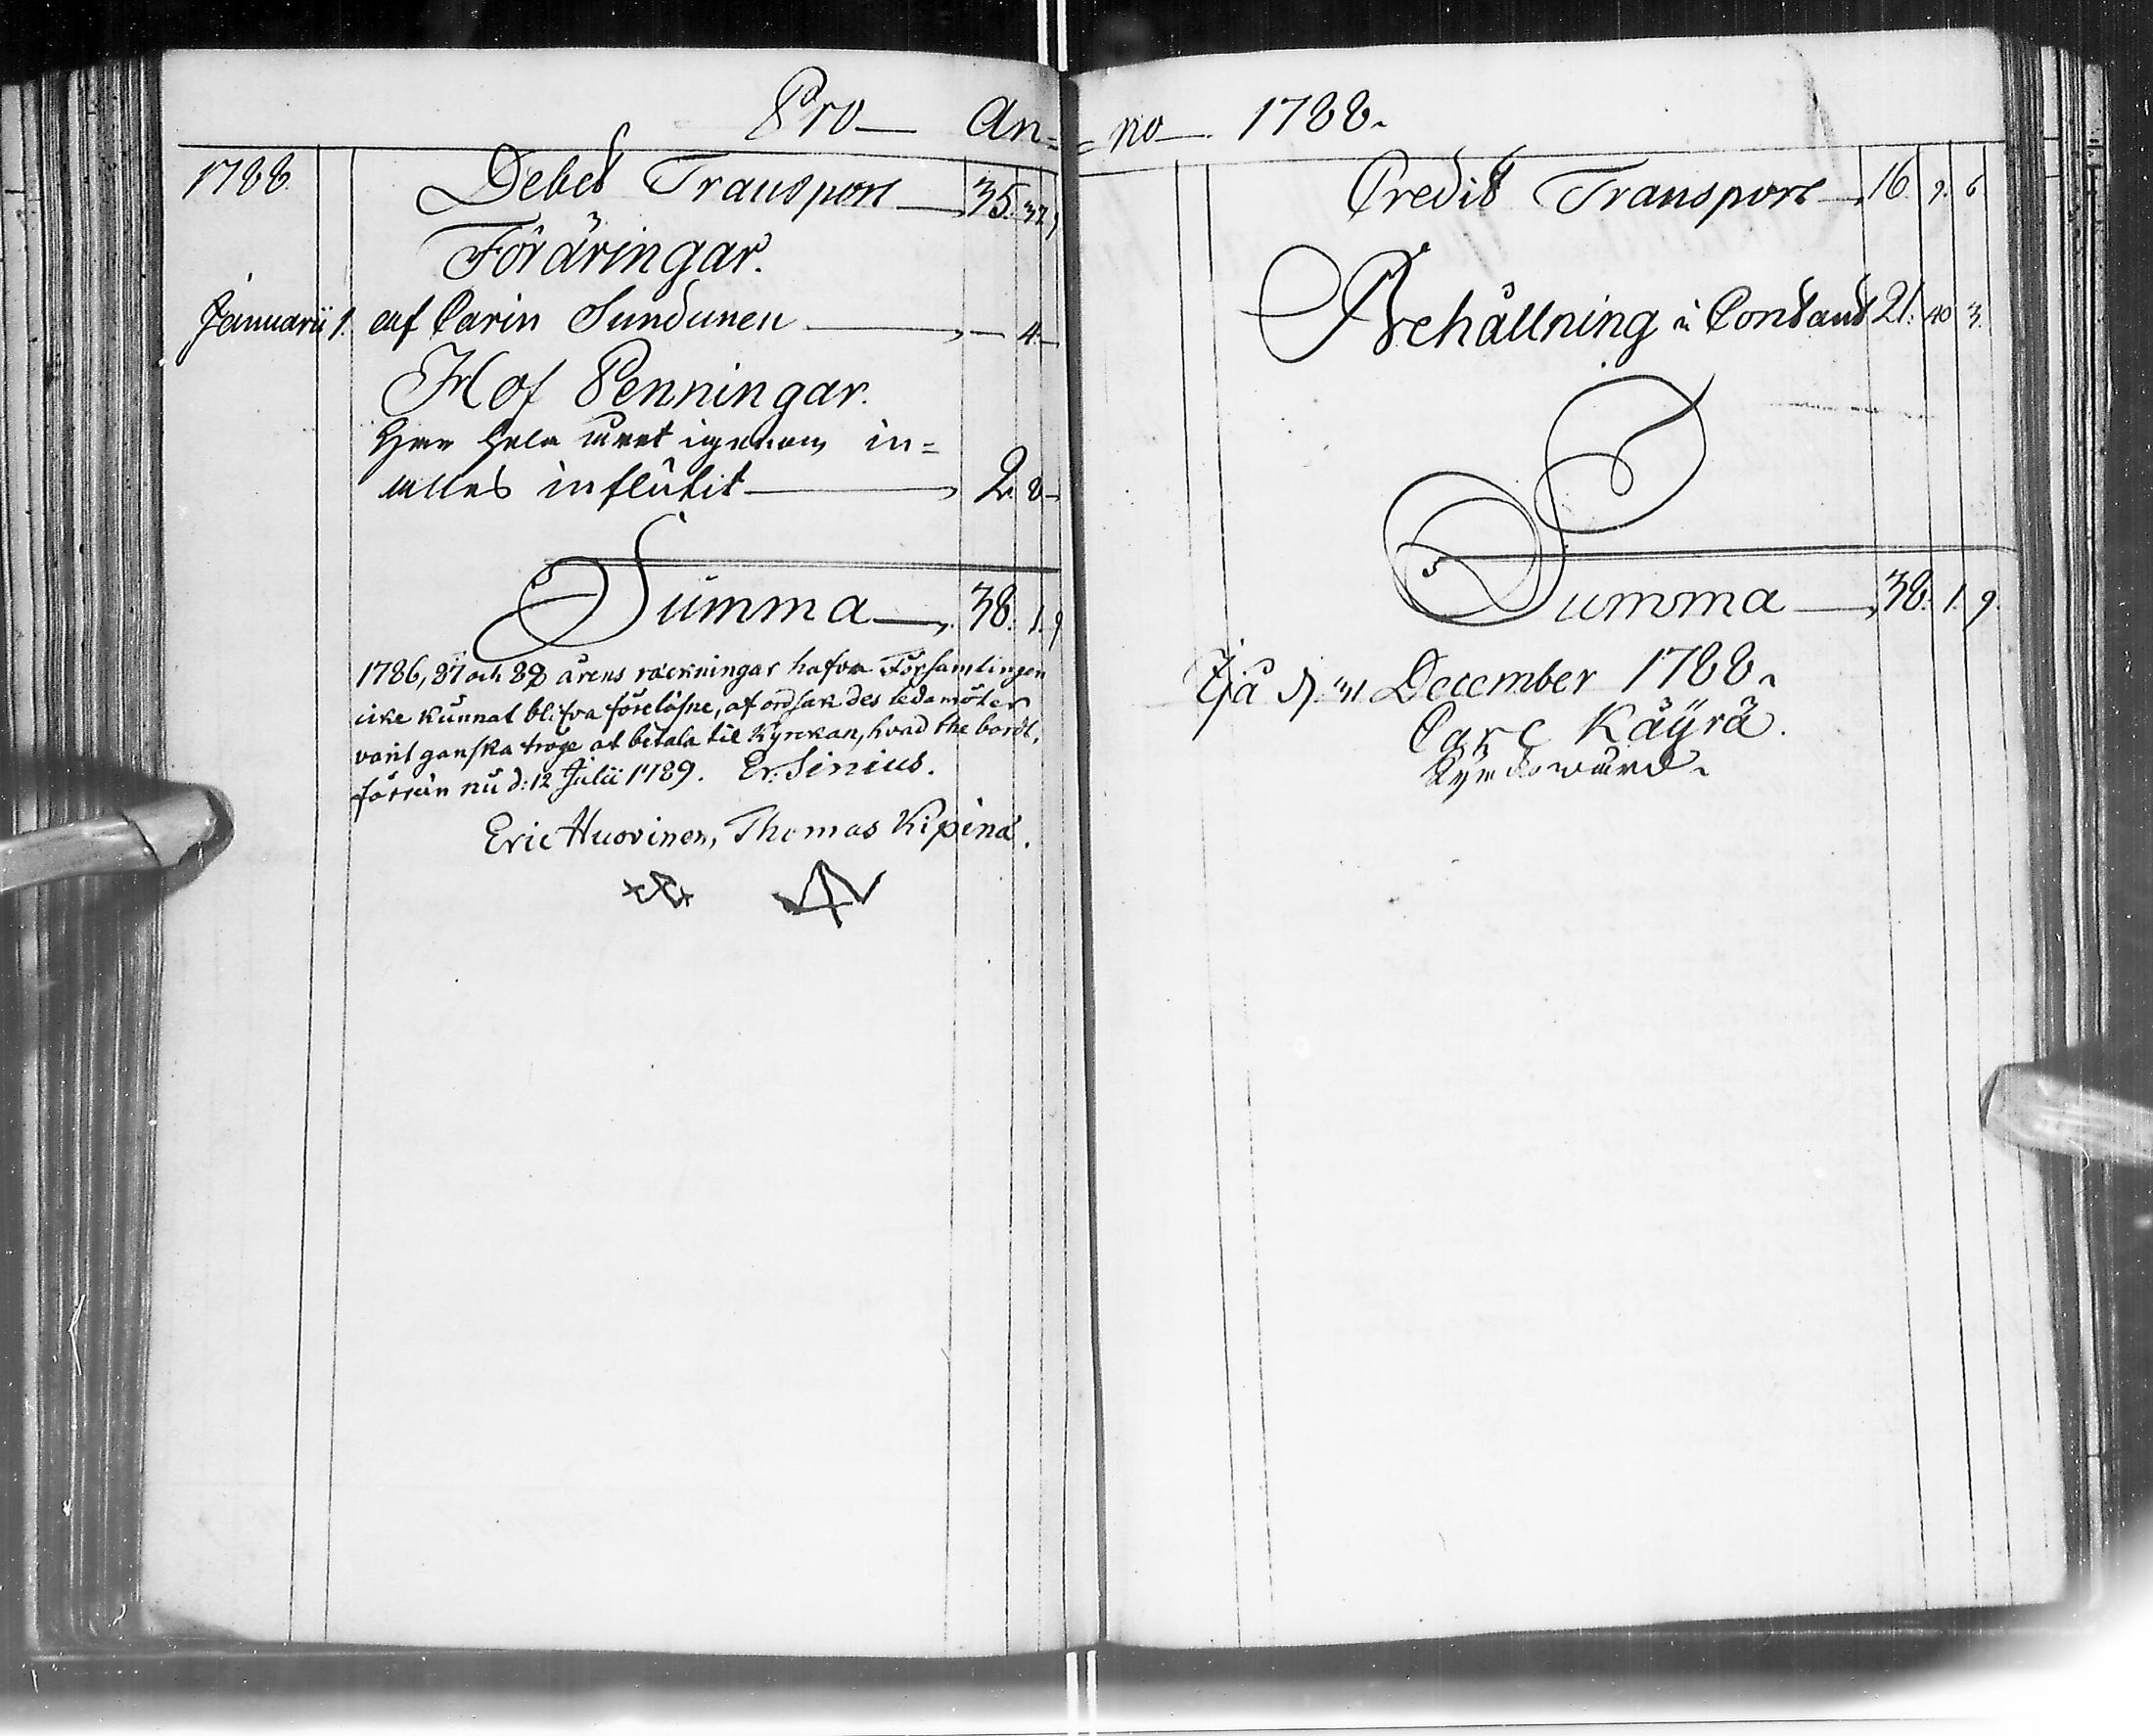 Pro— An=
1788. Debet Transport 35. 37. 9
Föräringar.
Januarii 1. af Carin Sundunen — 4. —
Håf Penningar.
Har hela året igenom in=
alles influtit 2. 8 —
Summa 38. 1. 9
1786, 87 och 88 årens räckningar hafva Församlingen
icke kunnat blifva föreläsne, af ordsak des ledamöter
varit ganska tröge at betala til Kyrckan, hvad the bordt,
förrän nu d: 12 Julii 1789. Er: Sinius.
Eric Huovinen, Thomas Kipinä.
=no— 1788.
Credit Transport 16. 9. 6
Behållning i Contant 21. 40 3.
Summa 38. 1. 9.
d. 31 December 1788.
Carl Käyrä.